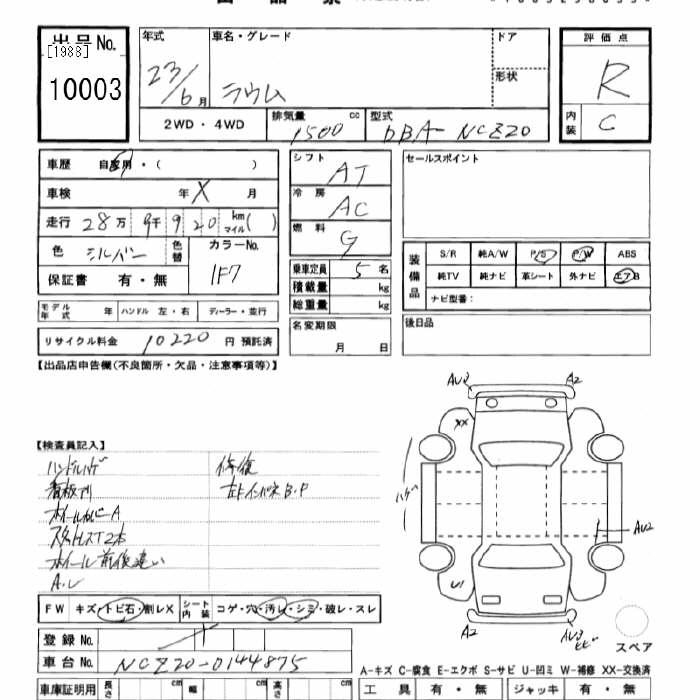 出品No.
[1988]
10003
年式
23/6月
車名・グレード
ラウム
ドア
形状
評価点
R
内装 C
2WD・4WD
排気量 1500 cc
型式 DBA-NCZ20
車歴 自家用・( )
車検 年 X 月
走行 28万 9千 9 20 km マイル( )
色 シルバー 色替
カラーNo. 1F7
保証書 有・無
モデル年式 年 ハンドル 左・右 ディーラー・並行
リサイクル料金 10220 円 預託済
シフト AT
冷房 AC
燃料 G
乗車定員 5 名
積載量 kg
総重量 kg
名変期限
月 日
セールスポイント
装備品
S/R 純A/W P/S P/W ABS
純TV 純ナビ 革シート 外ナビ エアB
ナビ型番:
後日品
【出品店申告欄(不良箇所・欠品・注意事項等)】
【検査員記入】
ハンドルハゲ
看板跡
ホイールカバーA
スタットレスT2本
ホイール前後違い
A.L
修復
左トインパネB.P
AU3 A2
XX
ハゲ
AU2
U1
A2
AU3
スペア
FW キズ・トビ石・割レX シート内装 コゲ・穴・汚レ・シミ・破レ・スレ
登録No.
車台No. NCZ20-0144875
A-キズ C-腐食 E-エクボ S-サビ U-凹ミ W-補修 XX-交換済
車庫証明用 長さ cm 幅 cm 高さ cm
工具 有・無 ジャッキ 有・無